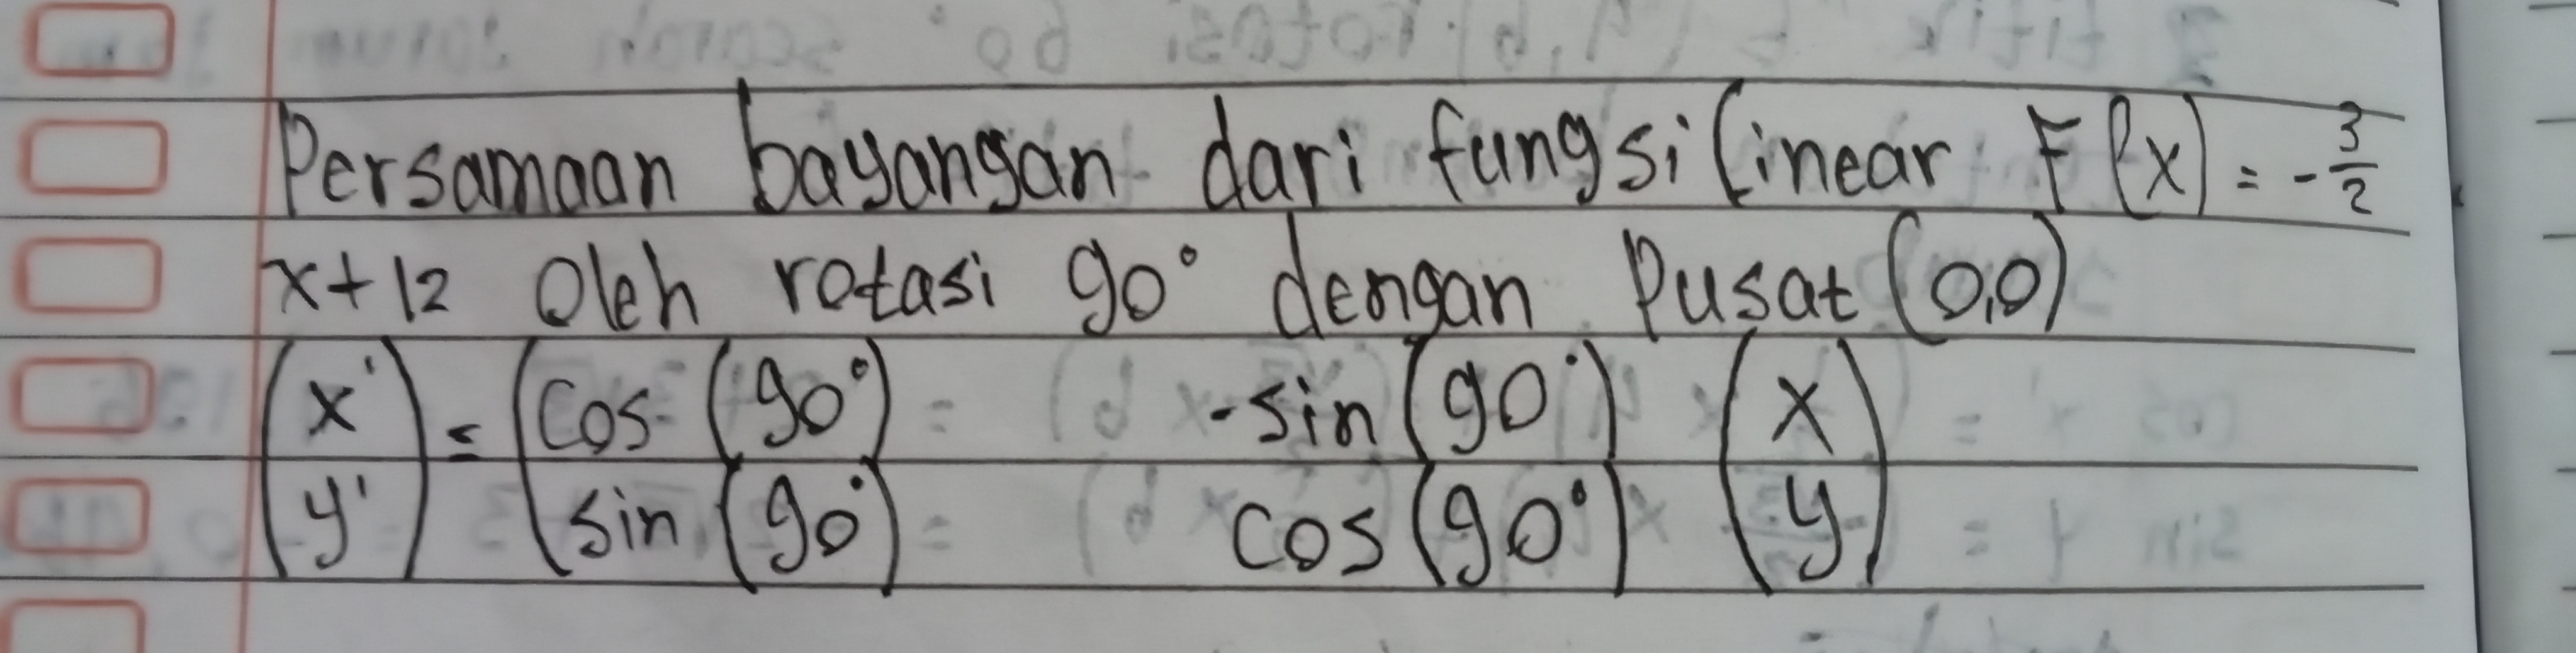 Persamaan bayangan dari fungsi linear F(x) = -3/2
x+12 Oleh rotasi 90° dengan Pusat (0,0)
(x') = (cos (90°) -sin (90°) (x)
(y') (sin (90°) cos (90°) (y)